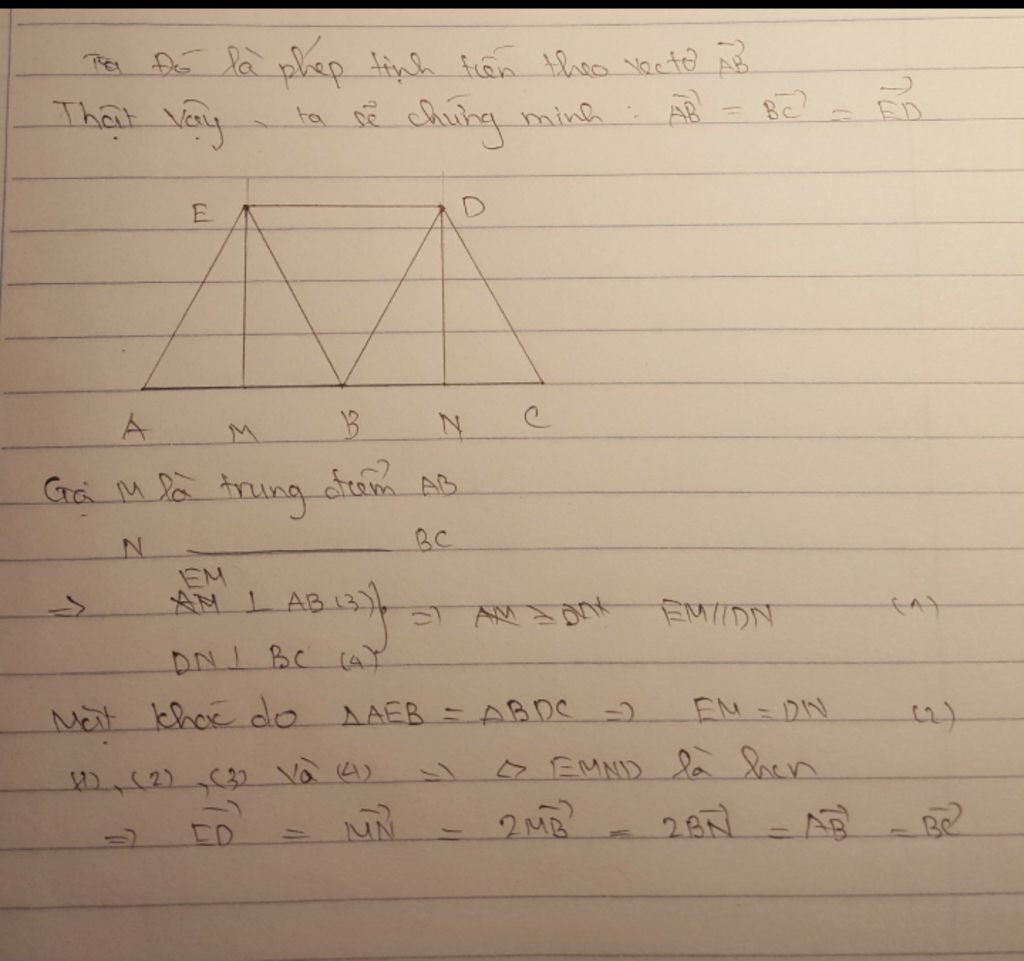 Đó là phép tịnh tiến theo vectơ \overrightarrow{AB}
Thật vậy, ta sẽ chứng minh : \overrightarrow{AB} = \overrightarrow{BC} = \overrightarrow{ED}
E D
A M B N C
Gọi M là trung điểm AB
N ———— BC
EM
=> AM ⊥ AB (3) } => EM//DN (1)
DN ⊥ BC (4)
Mặt khác do ΔAEB = ΔBDC => EM = DN (2)
(1), (2), (3) và (4) => ◇ EMND là hcn
=> \overrightarrow{ED} = \overrightarrow{MN} = 2\overrightarrow{MB} = 2\overrightarrow{BN} = \overrightarrow{AB} = \overrightarrow{BC}